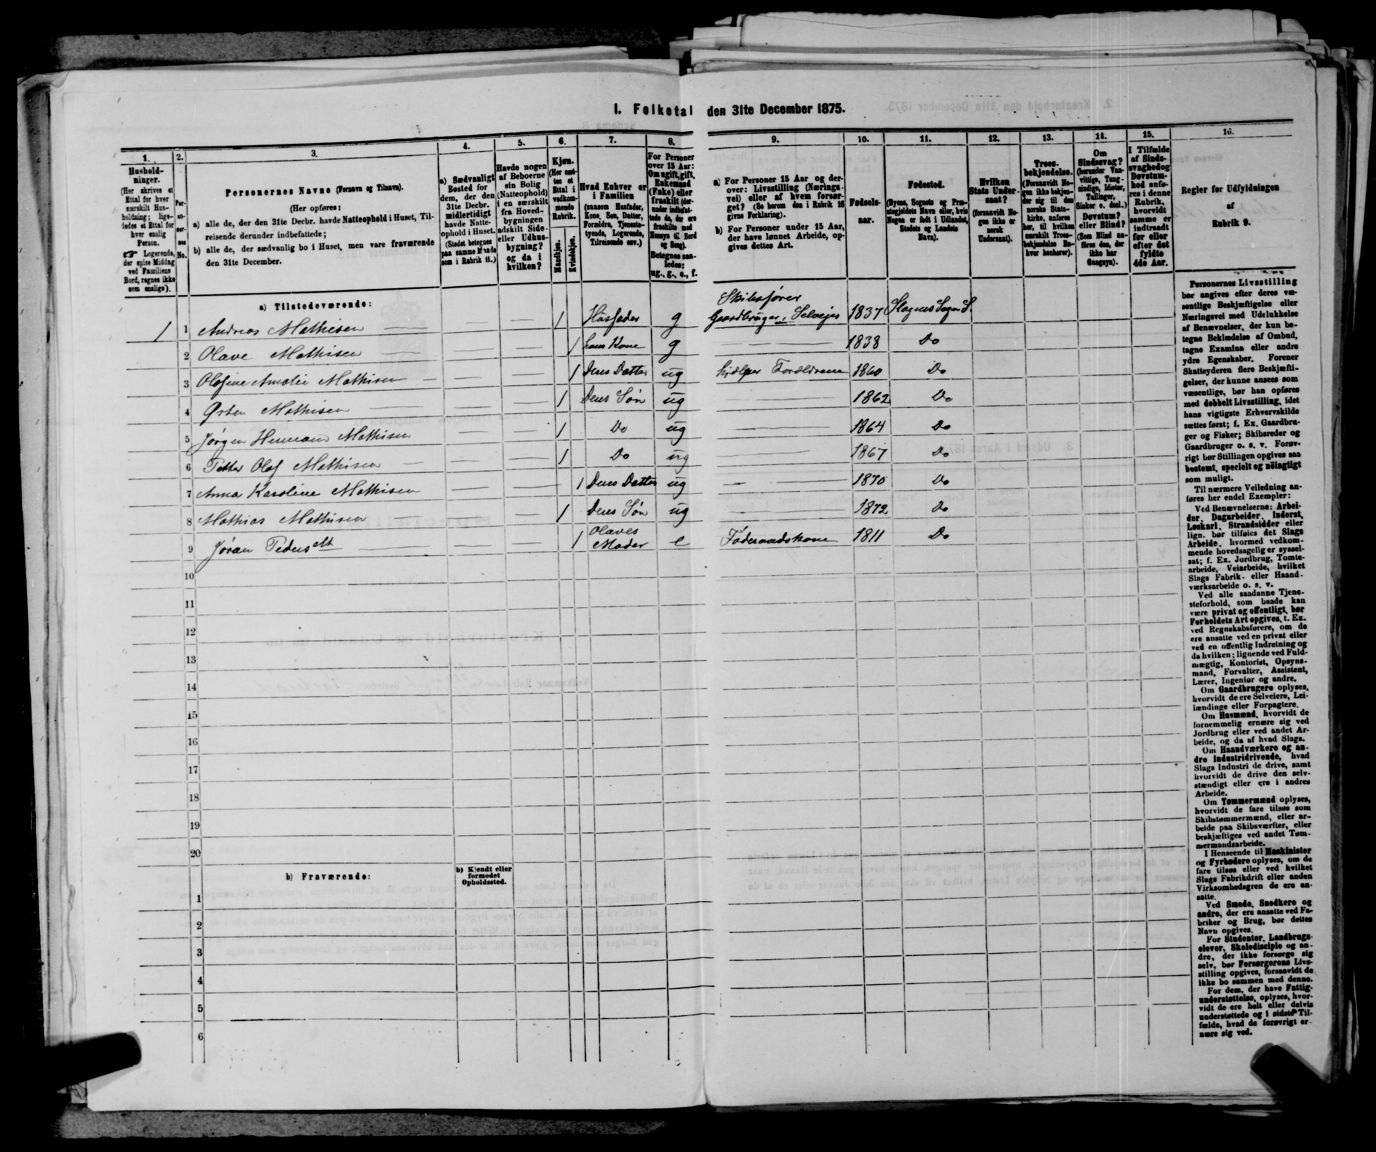 I. Folketal den 31te December 1875.
1.
Husholdninger.
(Her skrives et Ettal for hver særskilt Husholdning; ligeledes et Ettal for hver enslig Person.
☞ Logerende, der spise Middag ved Familiens Bord, regnes ikke som enslige).
2.
Personernes No.
3.
Personernes Navne (Fornavn og Tilnavn).
(Her opføres:
a) alle de, der den 31te Decbr. havde Natteophold i Huset, Tilreisende derunder indbefattede;
b) alle de, der sædvanlig bo i Huset, men vare fraværende den 31te December.
4.
a) Sædvanligt Bosted for dem, der den 31te Decbr. midlertidigt havde Natteophold i Huset.
(Stedet betegnes paa samme Maade som i Rubrik 11.)
5.
Havde nogen af Beboerne sin Bolig (Natteophold) i en særskilt fra Hovedbygningen adskilt Side- eller Udhusbygning? og da i hvilken?
6.
Kjøn.
(Her sættes et Ettal i vedkommende Rubrik.
Mandkjøn.
Kvindekjøn.
7.
Hvad Enhver er i Familien
(saasom Husfader, Kone, Søn, Datter, Forældre, Tjenestetyende, Logerende, Tilreisende osv.)
8.
For Personer over 15 Aar:
Betegnes saaledes:
ug., g., e., f.
9.
a) For Personer 15 Aar og derover: Livsstilling (Næringsvei) eller af hvem forsørget? (Se herom den i Rubrik 16 givne Forklaring).
b) For Personer under 15 Aar, der have lønnet Arbeide, opgives dettes Art.
10.
Fødselsaar.
11.
Fødested.
(Byens, Sognets og Præstegjeldets Navn eller, hvis Nogen er født i Udlandet, Stedets og Landets Navn).
12.
Hvilken Stats Undersaat?
(forsaavidt Nogen ikke er norsk Undersaat).
13.
Troesbekjendelse.
(Forsaavidt Nogen ikke bekjender sig til den norske Statskirke, anføres her, til hvilken særskilt Troesbekjendelse Enhver henhører).
14.
Om Sindssvag? (herunder Vanvittige, Tungsindige, Idioter, Tullinger, Sinker o. desl.) Døvstum? eller Blind? (Som Blind anføres den, der ikke har Gangsyn).
15.
I Tilfælde af Sindssvaghed og Døvstumhed anføres i denne Rubrik, hvorvidt samme er indtraadt før eller efter det fyldte 4de Aar.
16.
Regler for Udfyldningen af Rubrik 9.
a) Tilstedeværende:
1 1 Andreas Mathisen 1 Husfader g Skibsfører Gaardbruger, Selveier 1837 Slagens Sogn
2 Olave Mathisen 1 hans Kone g 1838 Do
3 Olefine Amalie Mathisen 1 Deres Datter ug hjælper Forældrene 1860 Do
4 Østen Mathisen 1 Deres Søn ug 1862 Do
5 Jørgen Herman Mathisen 1 Do ug 1864 Do
6 Petter Olaf Mathisen 1 Do ug 1867 Do
7 Anna Karoline Mathisen 1 Deres Datter ug 1870 Do
8 Mathias Mathisen 1 Deres Søn ug 1872 Do
9 Jøran Peders 1 Olaves Moder e Føderaadskone 1811 Do
10
11
12
13
14
15
16
17
18
19
20
b) Fraværende:
b) Kjendt eller formodet Opholdssted.
1
2
3
4
5
6
Personernes Livsstilling bør angives efter deres væsentlige Beskjæftigelse eller Næringsvei med Udelukkelse af Benævnelser, der kun betegne Beklædelse af Ombud, tagne Examina eller andre ydre Egenskaber. Forener Skatteyderen flere Beskjæftigelser, der kunne ansees som væsentlige, bør han opføres med dobbelt Livsstilling, idet hans vigtigste Erhvervskilde sættes først; f. Ex. Gaardbruger og Fisker; Skibsreder og Gaardbruger o. s. v. Forøvrigt bør Stillingen opgives saa bestemt, specielt og nøiagtigt som muligt.
Til nærmere Veiledning anføres her endel Exempler:
Ved Benævnelserne: Arbeider, Dagarbeider, Inderst, Løskarl, Strandsidder eller lign. bør tilføies det Slags Arbeide, hvormed vedkommende hovedsagelig er sysselsat; f. Ex. Jordbrug, Tomtearbeide, Veiarbeide, hvilket Slags Fabrik- eller Haandværksarbeide o. s. v.
Ved alle saadanne Tjenesteforhold, som baade kan være privat og offentligt, bør Forholdets Art opgives, f. Ex. ved Regnskabsførere, om de ere ansatte ved en privat eller ved en offentlig Indretning og da hvilken; lignende ved Fuldmægtig, Kontorist, Opsynsmand, Forvalter, Assistent, Lærer, Ingeniør og andre.
Om Gaardbrugere oplyses, hvorvidt de ere Selveiere, Leilændinge eller Forpagtere.
Om Husmænd, hvorvidt de fornemmelig ernære sig ved Jordbrug eller ved andet Arbeide, og da af hvad Slags.
Om Haandværkere og andre Industridrivende, hvad Slags Industri de drive, samt hvorvidt de drive den selvstændigt eller ere i andres Arbeide.
Om Tømmermænd oplyses, hvorvidt de fare tilsøs som Skibstømmermænd, eller arbeide paa Skibsværfter, eller beskjæftiges ved andet Tømmermandsarbeide.
I Henseende til Maskinister og Fyrbødere oplyses, om de fare tilsøs eller ved hvilket Slags Fabrikdrift eller anden Virksomhedsgren de ere ansatte.
Ved Smede, Snedkere og andre, der ere ansatte ved Fabriker og Brug, bør dettes Navn opgives.
For Studenter, Landbrugselever, Skoledisciple og andre, der ikke forsørge sig selv, bør Forsørgerens Livsstilling opgives, forsaavidt de ikke bo sammen med denne.
For dem, der have Fattigunderstøttelse, oplyses, hvorvidt de ere helt eller delvis understøttede og i sidste Tilfælde, hvad de forøvrigt ernære sig ved.